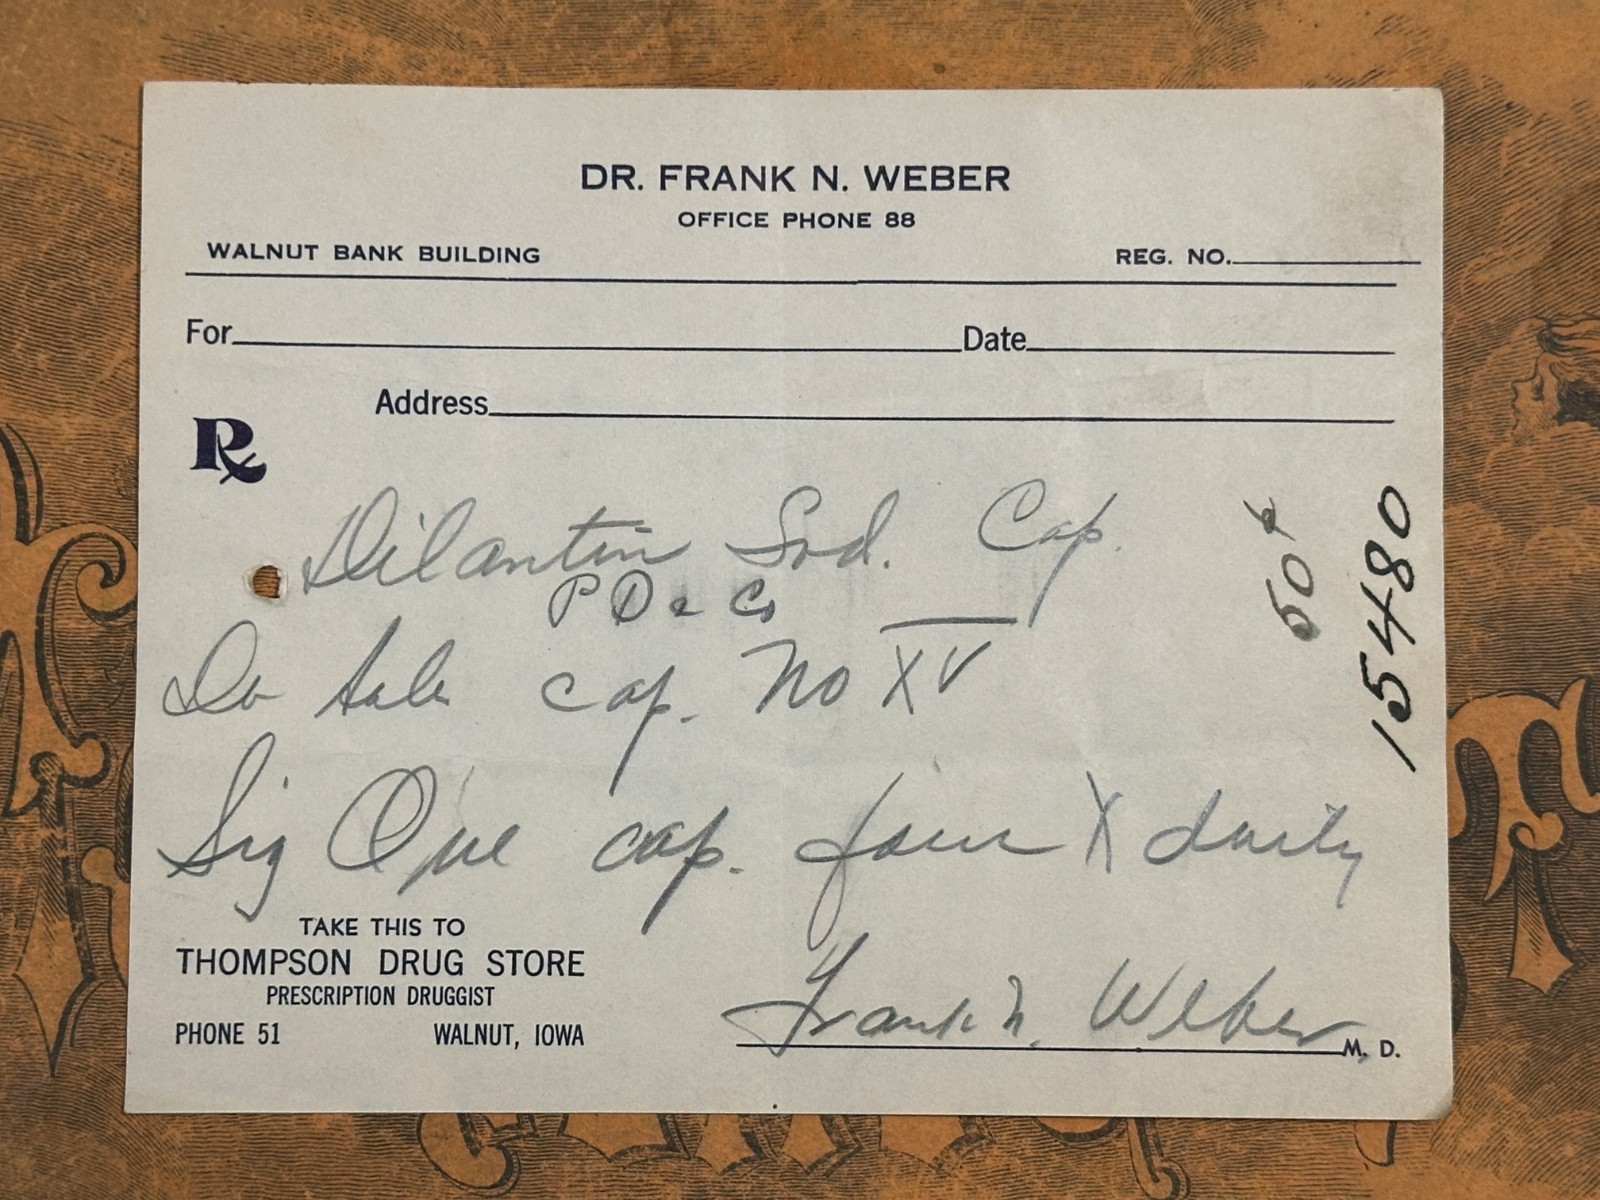 DR. FRANK N. WEBER
OFFICE PHONE 88
WALNUT BANK BUILDING REG. NO.
For Date
Address
Rx
Dilantin Sod. Cap.
P D & Co
cap. No XV
Sig One cap. four X daily
50¢
15480
TAKE THIS TO
THOMPSON DRUG STORE
PRESCRIPTION DRUGGIST
PHONE 51 WALNUT, IOWA
Frank N. Weber M. D.